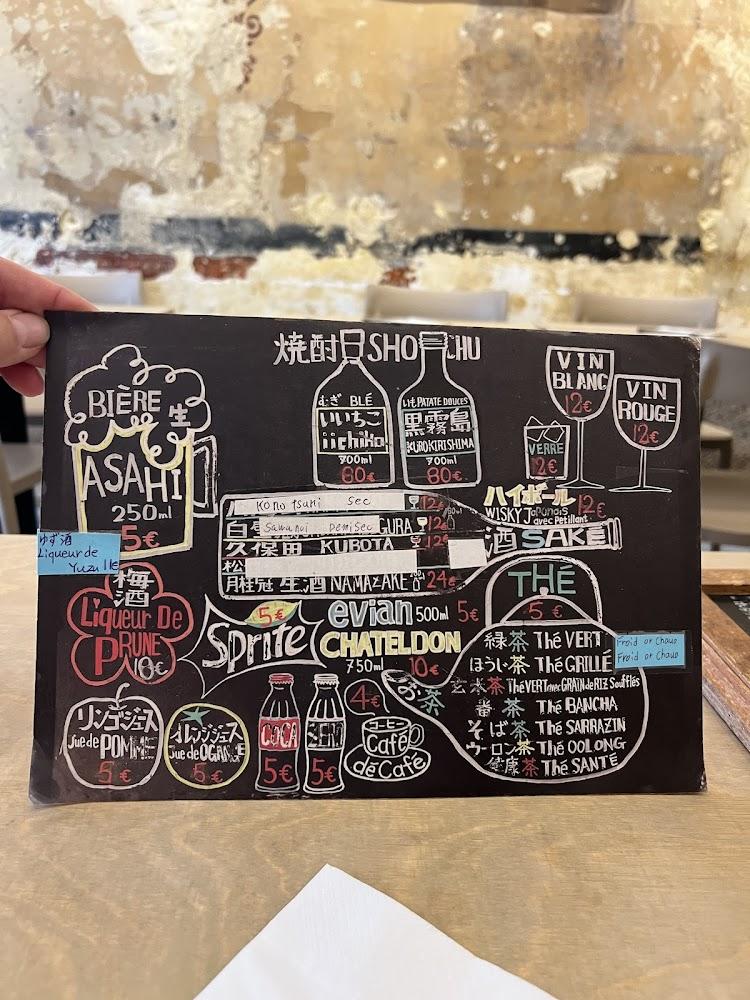 焼酎 SHOCHU
BIÈRE 生
ASAHI
250ml
5€
むぎ BLÉ
いいちこ
iichiko
700ml
60€
いも PATATE DOUCES
黒霧島
KUROKIRISHIMA
700ml
60€
VERRE
12€
VIN
BLANC
12€
VIN
ROUGE
12€
ハイボール
WISKY Japonais
avec Petillant
12€
酒 SAKÉ
Konotsuki sec 12€
白 Sawanoi Demisec GURA 12€
久保田 KUBOTA 12€
松
月桂冠 生酒 NAMAZAKE 24€
ゆず酒
Liqueur de
Yuzu
梅酒
Liqueur De
PRUNE
5€
Sprite
evian 500ml 5€
CHATELDON
750ml 10€
THÉ
5€
お茶
緑茶 Thé VERT
Froid or Chaud
ほうじ茶 Thé GRILLÉ
Froid or Chaud
玄米茶 Thé VERT avec GRAIN de RIZ Soufflés
番茶 Thé BANCHA
そば茶 Thé SARRAZIN
ウーロン茶 Thé OOLONG
健康茶 Thé SANTÉ
リンゴジュース
Jue de POMME
5€
オレンジジュース
Jue de ORANGE
5€
COCA
5€
ZERO
5€
4€
コーヒー
Café
déCafé